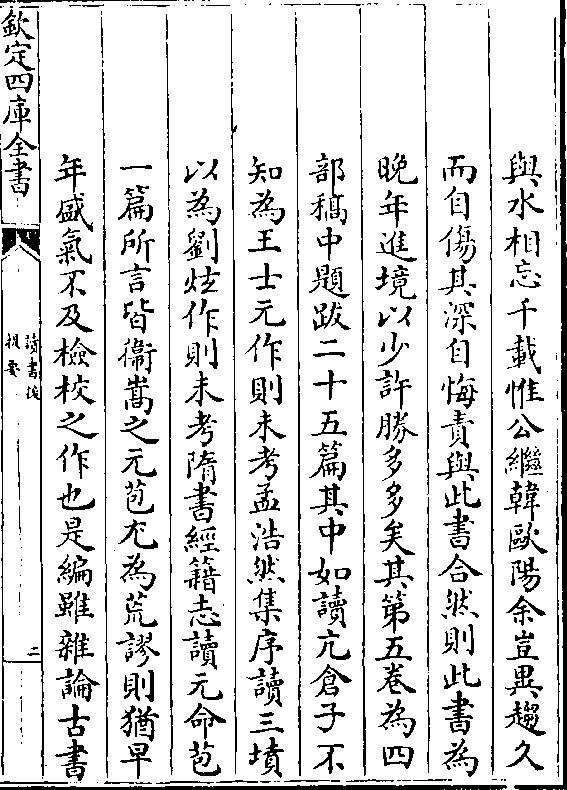 與水相忘千載惟公繼韓歐陽余豈異趨久
而自傷其深自悔責與此書合然則此書為
晚年進境以少許勝多多矣其第五卷為四
部稿中題跋二十五篇其中如讀亢倉子不
知為王士元作則未考孟浩然集序讀三墳
以為劉炫作則未考隋書經籍志讀元命苞
一篇所言皆衞嵩之元苞尤為荒謬則猶早
年盛氣不及檢校之作也是編雖雜論古書
欽定四庫全書
讀書後
提要
二